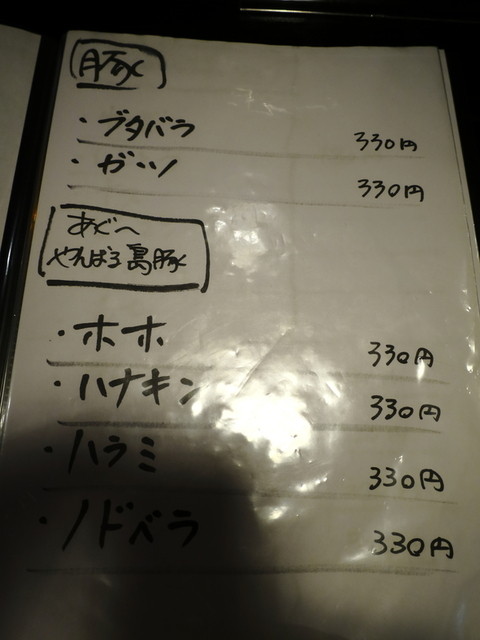 豚
・ブタバラ 330円
・ガツ 330円
あぐー
やんばる島豚
・ホホ 330円
・ハナキン 330円
・ハラミ 330円
・ノドベラ 330円